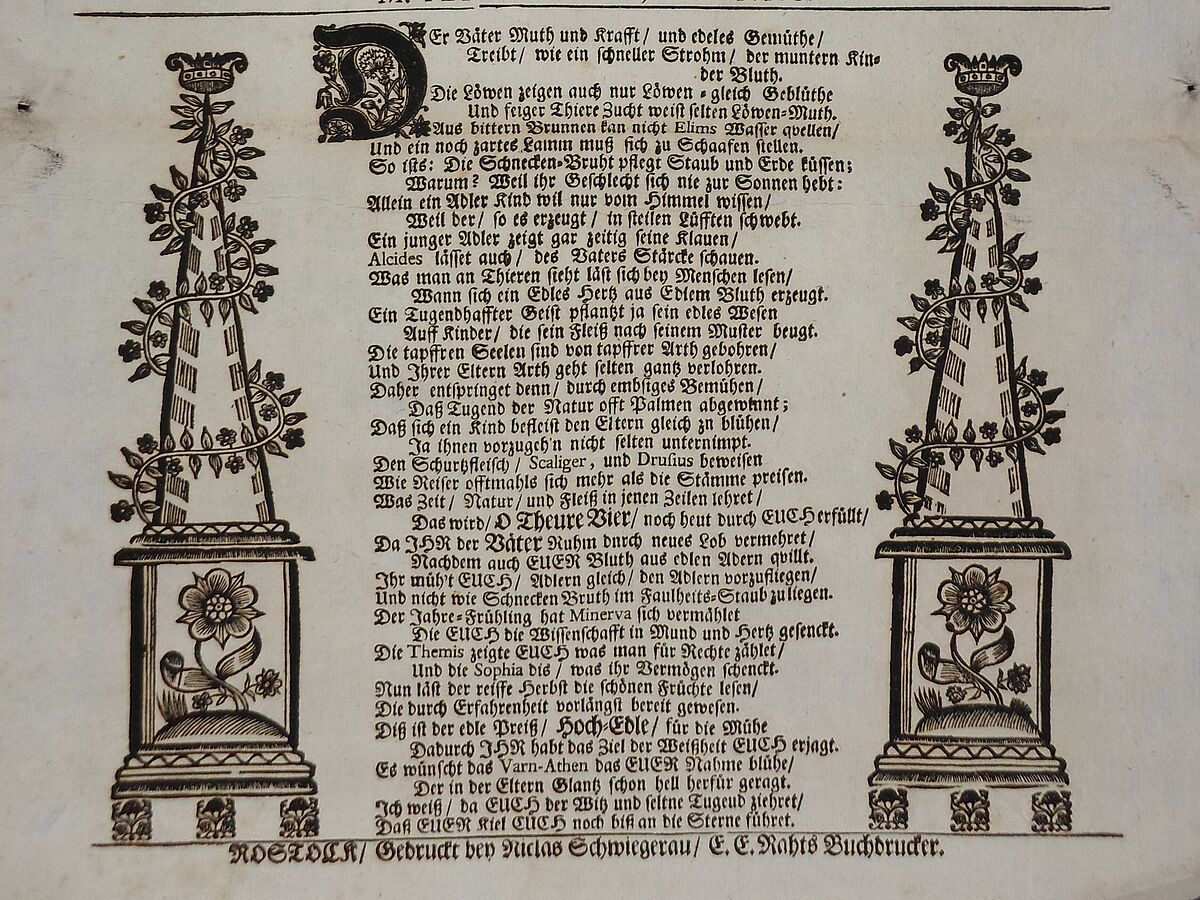 DEr Väter Muth und Krafft/ und edeles Gemüthe/
Treibt/ wie ein schneller Strohm/ der muntern Kin-
der Bluth.
Die Löwen zeigen auch nur Löwen-gleich Geblüthe
Und feiger Thiere Zucht weist selten Löwen-Muth.
Aus bittern Brunnen kan nicht Elims Wasser qvellen/
Und ein noch zartes Lamm muß sich zu Schaafen stellen.
So ists: Die Schnecken-Bruht pflegt Staub und Erde küssen;
Warum? Weil ihr Geschlecht sich nie zur Sonnen hebt:
Allein ein Adler Kind wil nur vom Himmel wissen/
Weil der/ so es erzeugt/ in steilen Lüfften schwebt.
Ein junger Adler zeigt gar zeitig seine Klauen/
Alcides lässet auch/ des Vaters Stärcke schauen.
Was man an Thieren sieht läst sich bey Menschen lesen/
Wann sich ein Edles Hertz aus Edlem Bluth erzeugt.
Ein Tugendhaffter Geist pflantzt ja sein edles Wesen
Auff Kinder/ die sein Fleiß nach seinem Muster beugt.
Die tapffren Seelen sind von tapffrer Arth gebohren/
Und Jhrer Eltern Arth geht selten gantz verlohren.
Daher entspringet denn/ durch embsiges Bemühen/
Daß Tugend der Natur offt Palmen abgewinnt;
Daß sich ein Kind befleist den Eltern gleich zu blühen/
Ja ihnen vorzugeh'n nicht selten unternimpt.
Den Schurtzfleisch/ Scaliger, und Drusius beweisen
Wie Reiser offtmahls sich mehr als die Stämme preisen.
Was Zeit/ Natur/ und Fleiß in jenen Zeilen lehret/
Das wird/ O Theure Vier/ noch heut durch EUCH erfüllt/
Da JHR der Väter Ruhm durch neues Lob vermehret/
Nachdem auch EUER Bluth aus edlen Adern qvillt.
Jhr müh't EUCH/ Adlern gleich/ den Adlern vorzufliegen/
Und nicht wie Schnecken Bruth im Faulheits-Staub zu liegen.
Der Jahre-Frühling hat Minerva sich vermählet
Die EUCH die Wissenschafft in Mund und Hertz gesenckt.
Die Themis zeigte EUCH was man für Rechte zählet/
Und die Sophia dis/ was ihr Vermögen schenckt.
Nun läst der reiffe Herbst die schönen Früchte lesen/
Die durch Erfahrenheit vorlängst bereit gewesen.
Diß ist der edle Preiß/ Hoch-Edle/ für die Mühe
Dadurch JHR habt das Ziel der Weißheit EUCH erjagt.
Es wünscht das Varn-Athen das EUER Nahme blühe/
Der in der Eltern Glantz schon hell herfür geragt.
Jch weiß/ da EUCH der Witz und seltne Tugend ziehret/
Daß EUER Kiel EUCH noch biß an die Sterne führet.
ROSTOCK/ Gedruckt bey Niclas Schwiegerau/ E. E. Rahts Buchdrucker.